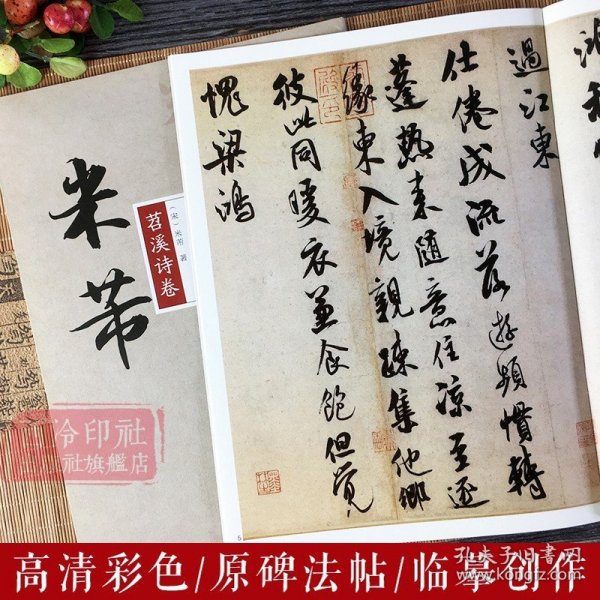 過江東
仕倦成流落遊頻慣轉
蓬熱来隨意住凉至逐
緣東入境親疎集他鄉
彼此同暖衣兼食飽但覚
愧梁鴻
5
米芾
苕溪诗卷
（宋）米芾 著
泠印社
社旗艦店
高清彩色/原碑法帖/临摹创作
孔夫子旧书网
www.kongfz.com